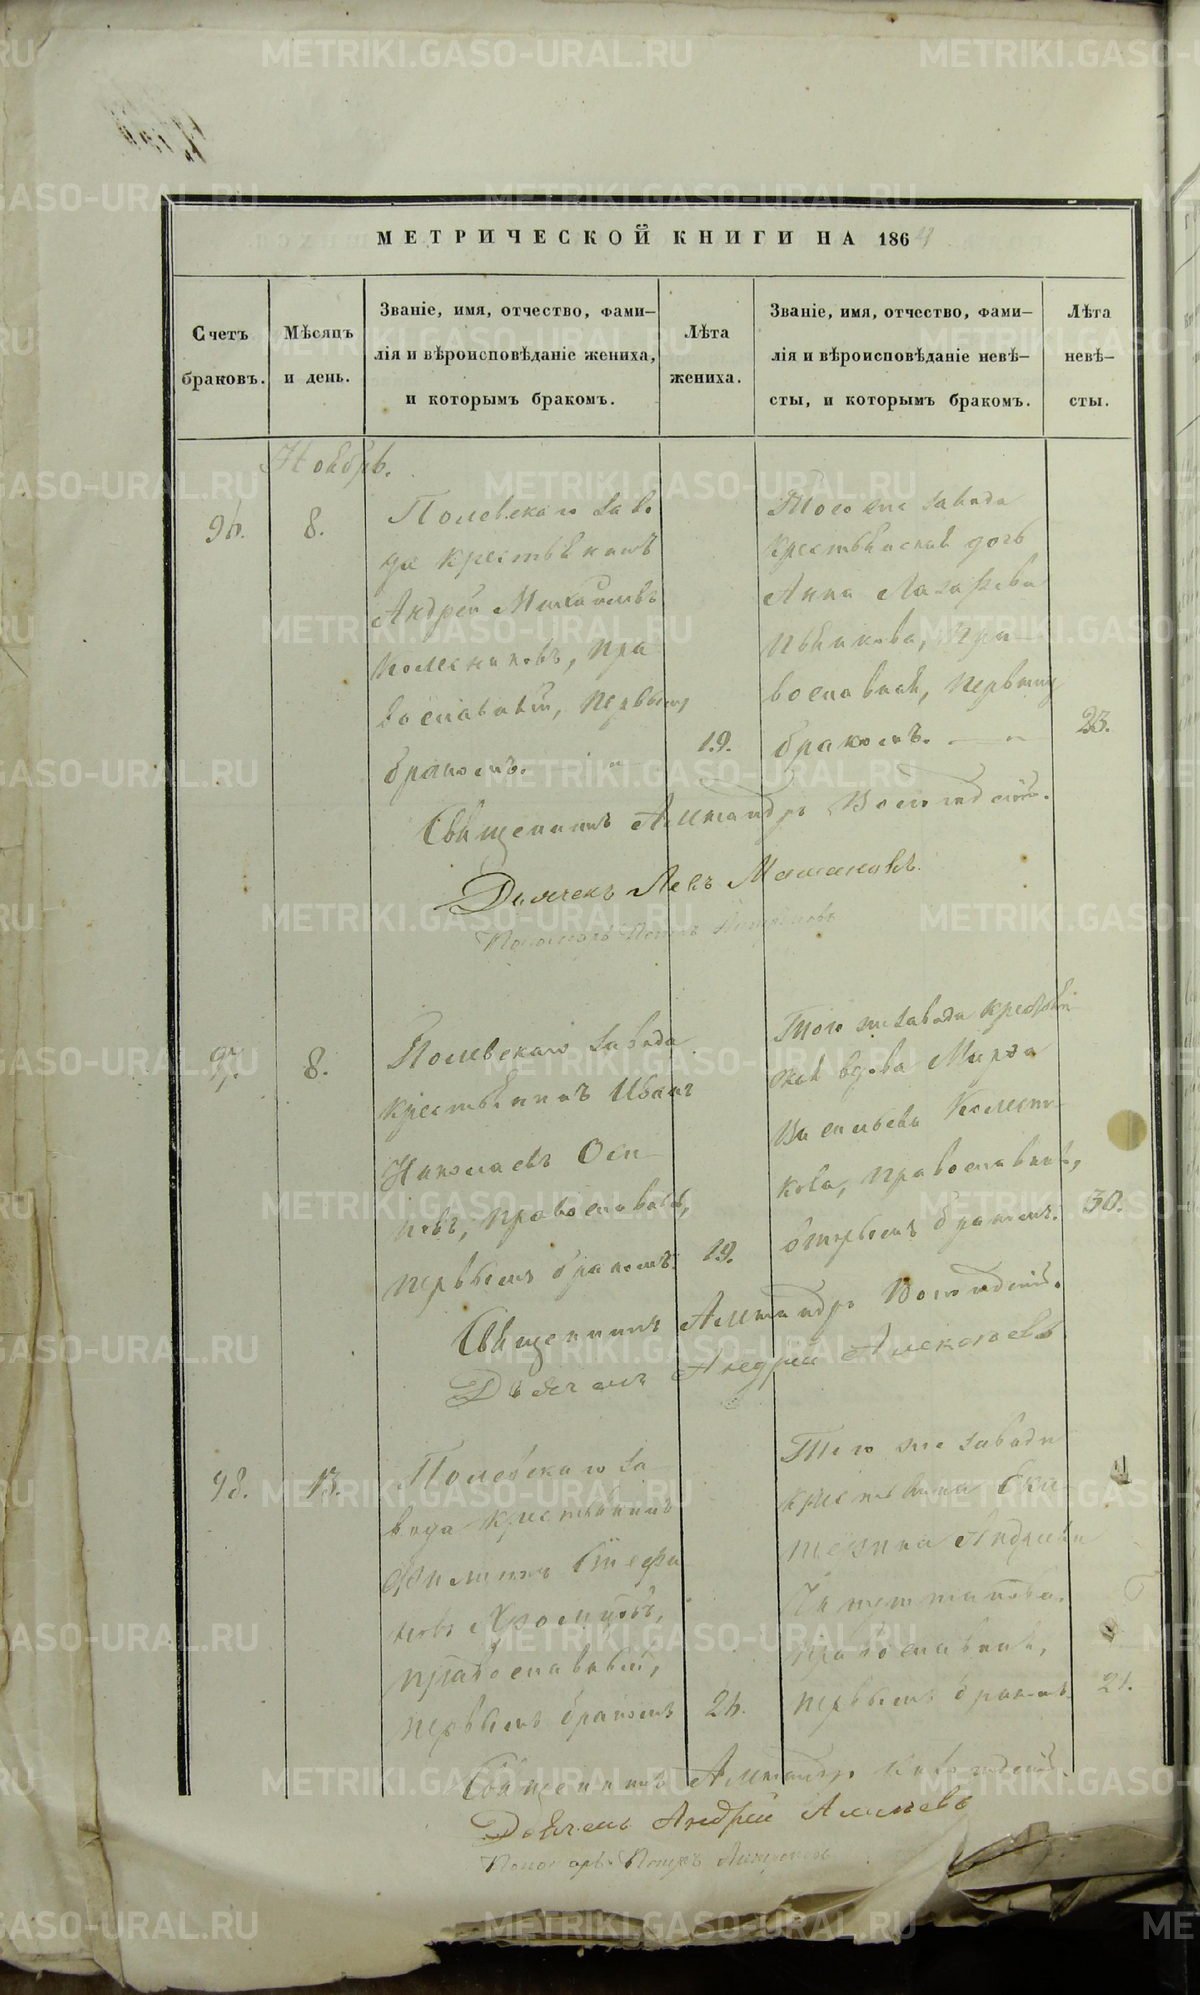 МЕТРИЧЕСКОЙ КНИГИ НА 1864
Счетъ браковъ.
Мѣсяцъ и день.
Званіе, имя, отчество, фами-
лія и вѣроисповѣданіе жениха,
и которымъ бракомъ.
Лѣта жениха.
Званіе, имя, отчество, фами-
лія и вѣроисповѣданіе невѣ-
сты, и которымъ бракомъ.
Лѣта невѣ-
сты.
Ноябрь.
96.
8.
Полевскаго заво
да крестьянинъ
Андрей Михайловъ
Колесниковъ, пра
вославный, первымъ
бракомъ.
19.
Того же завода
крестьянская дочь
Анна Лазарева
Пьянкова, пра-
вославная, первымъ
бракомъ.
23.
Священникъ Александръ
Дьячекъ Левъ
97.
8.
Полевскаго завода
крестьянинъ Иванъ
Николаевъ Оси-
повъ, православный,
первымъ бракомъ.
19.
Того же завода крестьян
ская вдова Марѳа
Васильева
кова, православная,
вторымъ бракомъ.
30.
Священникъ Александръ
Дьячекъ Андрей Алексѣевъ
98.
13.
Полевскаго за-
вода крестьянинъ
Филиппъ Стефа
новъ Хромцовъ,
православный,
первымъ бракомъ
26.
Того же завода
крестьянка Ека-
терина Андреева
православная,
первымъ бракомъ.
21.
Священникъ Александръ
Дьячекъ Андрей Алексѣевъ
Пономарь Петръ
METRIKI.GASO-URAL.RU